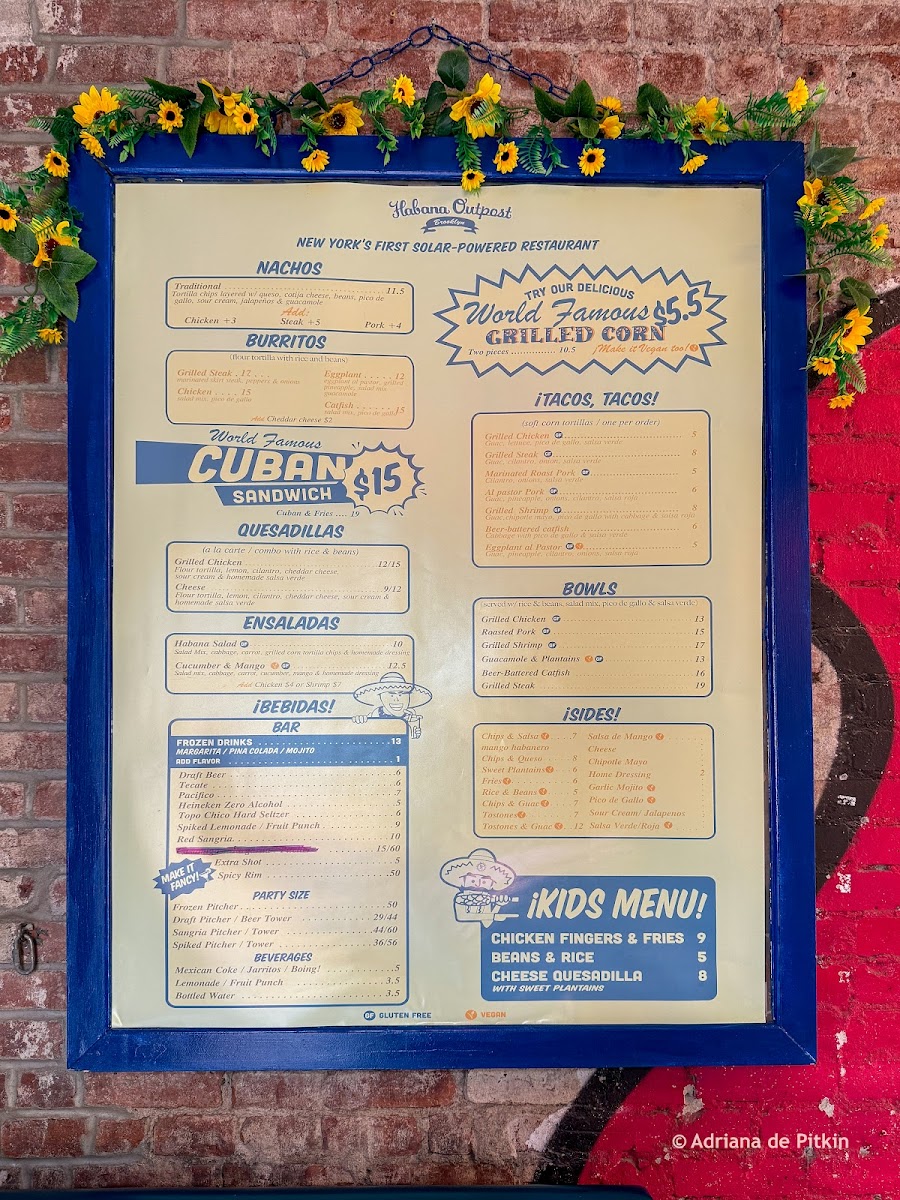 Habana Outpost
Brooklyn
NEW YORK'S FIRST SOLAR-POWERED RESTAURANT
NACHOS
Traditional 11.5
Tortilla chips layered w/ queso, cotija cheese, beans, pico de
gallo, sour cream, jalapeños & guacamole
Add:
Chicken +3 Steak +5 Pork +4
BURRITOS
(flour tortilla with rice and beans)
Grilled Steak . 17 . . .
marinated skirt steak, peppers & onions
Chicken . . . . 15
salad mix, pico de gallo
Eggplant . . . . . 12
eggplant al pastor, grilled
pineapple, salad mix
guacamole
Catfish . . . . . . 15
salad mix, pico de gallo
Add Cheddar cheese $2
World Famous
CUBAN
SANDWICH
$15
Cuban & Fries .... 19
QUESADILLAS
(a la carte / combo with rice & beans)
Grilled Chicken 12/15
Flour tortilla, lemon, cilantro, cheddar cheese,
sour cream & homemade salsa verde
Cheese 9/12
Flour tortilla, lemon, cilantro, cheddar cheese, sour cream &
homemade salsa verde
ENSALADAS
Habana Salad GF 10
Salad Mix, cabbage, carrot, grilled corn tortilla chips & homemade dressing
Cucumber & Mango GF 12.5
Salad mix, cabbage, carrot, cucumber, mango & homemade dressing
Add Chicken $4 or Shrimp $7
¡BEBIDAS!
BAR
FROZEN DRINKS 13
MARGARITA / PINA COLADA / MOJITO
ADD FLAVOR 1
Draft Beer 6
Tecate 6
Pacifico 7
Heineken Zero Alcohol 5
Topo Chico Hard Seltzer 6
Spiked Lemonade / Fruit Punch 9
Red Sangria 10
15/60
MAKE IT
FANCY!
Extra Shot 5
Spicy Rim .50
PARTY SIZE
Frozen Pitcher 50
Draft Pitcher / Beer Tower 29/44
Sangria Pitcher / Tower 44/60
Spiked Pitcher / Tower 36/56
BEVERAGES
Mexican Coke / Jarritos / Boing! 5
Lemonade / Fruit Punch 3.5
Bottled Water 3.5
TRY OUR DELICIOUS
World Famous $5.5
GRILLED CORN
Two pieces 10.5 ¡Make it Vegan too!
¡TACOS, TACOS!
(soft corn tortillas / one per order)
Grilled Chicken GF 5
Guac, lettuce, pico de gallo, salsa verde
Grilled Steak GF 8
Guac, cilantro, onion, salsa verde
Marinated Roast Pork GF 5
Cilantro, onions, salsa verde
Al pastor Pork GF 6
Guac, pineapple, onions, cilantro, salsa roja
Grilled Shrimp GF 8
Guac, chipotle mayo, pico de gallo with cabbage & salsa roja
Beer-battered catfish 6
Cabbage with pico de gallo & salsa verde
Eggplant al Pastor GF 5
Guac, pineapple, cilantro, onions, salsa roja
BOWLS
(served w/ rice & beans, salad mix, pico de gallo & salsa verde)
Grilled Chicken GF 13
Roasted Pork GF 15
Grilled Shrimp GF 17
Guacamole & Plantains GF 13
Beer-Battered Catfish 16
Grilled Steak 19
¡SIDES!
Chips & Salsa 7
mango habanero
Chips & Queso 8
Sweet Plantains 6
Fries 6
Rice & Beans 5
Chips & Guac 7
Tostones 7
Tostones & Guac 12
Salsa de Mango
Cheese
Chipotle Mayo
Home Dressing 2
Garlic Mojito
Pico de Gallo
Sour Cream/ Jalapenos
Salsa Verde/Roja
¡KIDS MENU!
CHICKEN FINGERS & FRIES 9
BEANS & RICE 5
CHEESE QUESADILLA 8
WITH SWEET PLANTAINS
GF GLUTEN FREE VEGAN
© Adriana de Pitkin